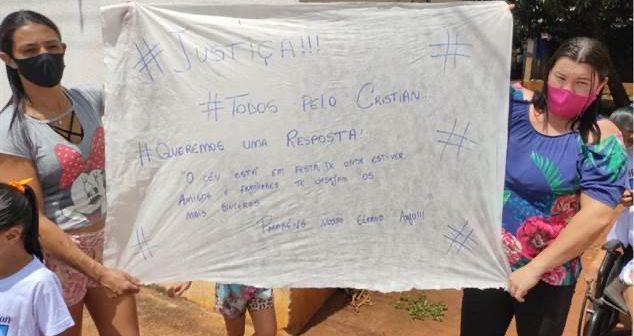 # JUSTIÇA!!! #
# TODOS PELO CRISTIAN...
# QUEREMOS UMA RESPOSTA! #
"O CÉU ESTÁ EM FESTA, E ONDE ESTIVER
AMIGOS E FAMILIARES TE DESEJAM OS
MAIS SINCEROS
PARABÉNS NOSSO ETERNO ANJO!!!
# #